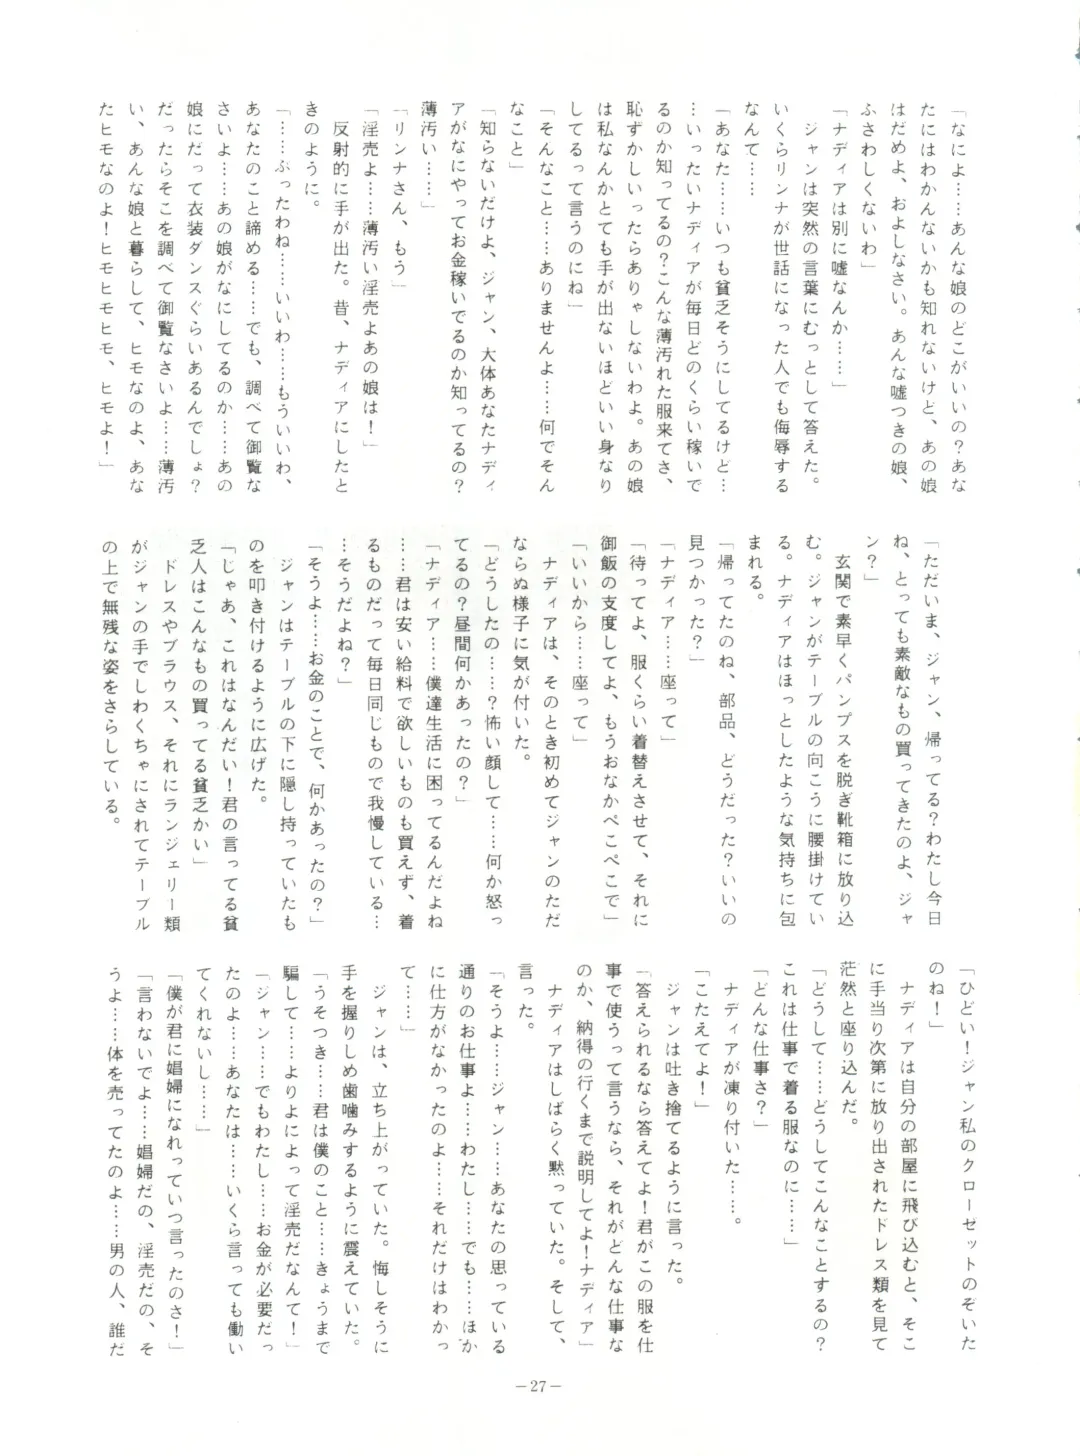 「なによ……あんな娘のどこがいいの？あな
たにはわかんないかも知れないけど、あの娘
はだめよ、およしなさい。あんな嘘つきの娘、
ふさわしくないわ」
「ナディアは別に嘘なんか……」
ジャンは突然の言葉にむっとして答えた。
いくらリンナが世話になった人でも侮辱する
なんて……
「あなた……いつも貧乏そうにしてるけど…
…いったいナディアが毎日どのくらい稼いで
るのか知ってるの？こんな薄汚れた服来てさ、
恥ずかしいったらありゃしないわよ。あの娘
は私なんかとても手が出ないほどいい身なり
してるって言うのにね」
「そんなこと……ありませんよ……何でそん
なこと」
「知らないだけよ、ジャン、大体あなたナディ
アがなにやってお金稼いでるのか知ってるの？
薄汚い……」
「リンナさん、もう」
「淫売よ……薄汚い淫売よあの娘は！」
反射的に手が出た。昔、ナディアにしたと
きのように。
「……ぶったわね……いいわ……もういいわ、
あなたのこと諦める……でも、調べて御覧な
さいよ……あの娘がなにしてるのか……あの
娘にだって衣装ダンスぐらいあるんでしょ？
だったらそこを調べて御覧なさいよ……薄汚
い、あんな娘と暮らして、ヒモなのよ、あな
たヒモなのよ！ヒモヒモヒモ、ヒモよ！」
「ただいま、ジャン、帰ってる？わたし今日
ね、とっても素敵なもの買ってきたのよ、ジャ
ン？」
玄関で素早くパンプスを脱ぎ靴箱に放り込
む。ジャンがテーブルの向こうに腰掛けてい
る。ナディアはほっとしたような気持ちに包
まれる。
「帰ってたのね、部品、どうだった？いいの
見つかった？」
「ナディア……座って」
「待ってよ、服くらい着替えさせて、それに
御飯の支度してよ、もうおなかぺこぺこで」
「いいから……座って」
ナディアは、そのとき初めてジャンのただ
ならぬ様子に気が付いた。
「どうしたの……？怖い顔して……何か怒っ
てるの？昼間何かあったの？」
「ナディア……僕達生活に困ってるんだよね
……君は安い給料で欲しいものも買えず、着
るものだって毎日同じもので我慢している…
…そうだよね？」
「そうよ……お金のことで、何かあったの？」
ジャンはテーブルの下に隠し持っていたも
のを叩き付けるように広げた。
「じゃあ、これはなんだい！君の言ってる貧
乏人はこんなもの買ってる貧乏かい」
ドレスやブラウス、それにランジェリー類
がジャンの手でしわくちゃにされてテーブル
の上で無残な姿をさらしている。
「ひどい！ジャン私のクローゼットのぞいた
のね！」
ナディアは自分の部屋に飛び込むと、そこ
に手当り次第に放り出されたドレス類を見て
茫然と座り込んだ。
「どうして……どうしてこんなことするの？
これは仕事で着る服なのに……」
「どんな仕事さ？」
ナディアが凍り付いた……。
「こたえてよ！」
ジャンは吐き捨てるように言った。
「答えられるなら答えてよ！君がこの服を仕
事で使うって言うなら、それがどんな仕事な
のか、納得の行くまで説明してよ！ナディア」
ナディアはしばらく黙っていた。そして、
言った。
「そうよ……ジャン……あなたの思っている
通りのお仕事よ……わたし……でも……ほか
に仕方がなかったのよ……それだけはわかっ
て……」
ジャンは、立ち上がっていた。悔しそうに
手を握りしめ歯噛みするように震えていた。
「うそつき……君は僕のこと……きょうまで
騙して……よりによって淫売だなんて！」
「ジャン……でもわたし……お金が必要だっ
たのよ……あなたは……いくら言っても働い
てくれないし……」
「僕が君に娼婦になれっていつ言ったのさ！」
「言わないでよ……娼婦だの、淫売だの、そ
うよ……体を売ってたのよ……男の人、誰だ
－27－